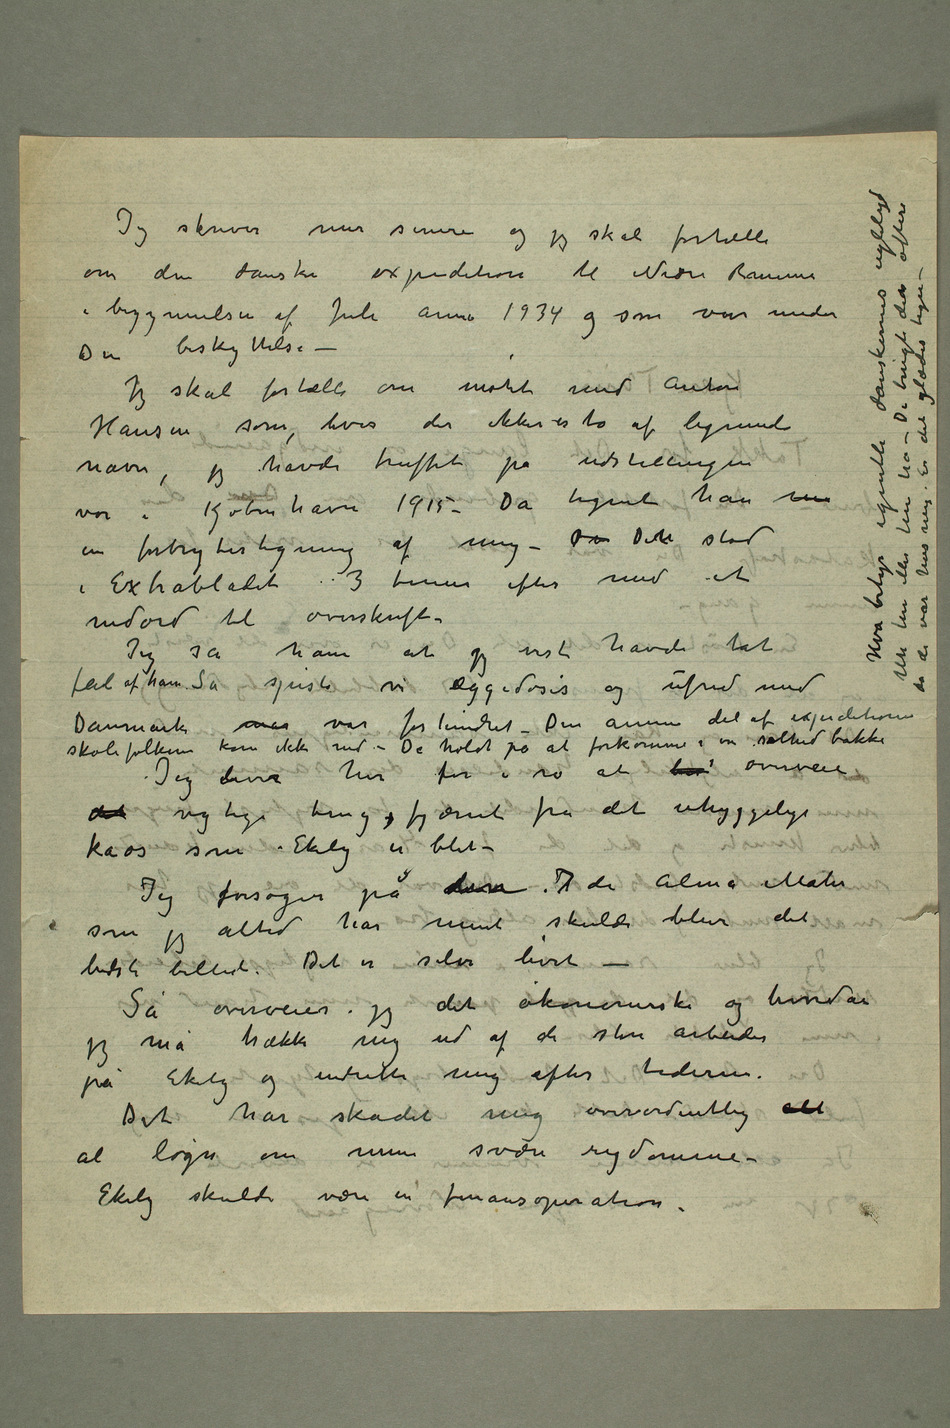 Jeg skriver mer senere og jeg skal fortælle
om den danske expedition til Nedre Ramme
i begynnelsen af Juli anno 1934 og som var under
Din beskyttelse –
Jeg skal fortælle om møtet med Anton
Hansen som, hvis der ikke es to af lignende
navn, jeg havde truffet på udstillingen
vor i Kjøbenhavn 1915 – Da tegnet han
en forbrytertegning af mig – Det stod
i Extrabladet 3 timer efter med et
ord til overskrift –
Jeg sa ham at jeg vist havde tat
feil af ham. Så spiste vi æggedosis og ufred med
Danmark var forhindret – Den annen del af expeditionen
skolefolkene kom ikke ned – De holdt på at forkomme i en bakke
Jeg her for i ro at overveie
vigtige ting, fjærnet fra det uhyggelige
kaos som Ekely er blet –
Jeg forsøger på de Alma Mater
som jeg altid har ment skulde blive det
bedste billed. Det er selve livet –
Så overveier jeg det økonomiske og hvordan
jeg må trække mig ud af de store arbeider
på Ekely og indrette mig efter tiderne.
Det har skadet mig overordentlig
al løgn om mine svære rigdomme –
Ekely skulde være en finansoperation.
Hva betyr egentlig danskernes
Ute ten eller ten ha – De brugt den oftere
da de var hos mig. Er det glædes tegn –